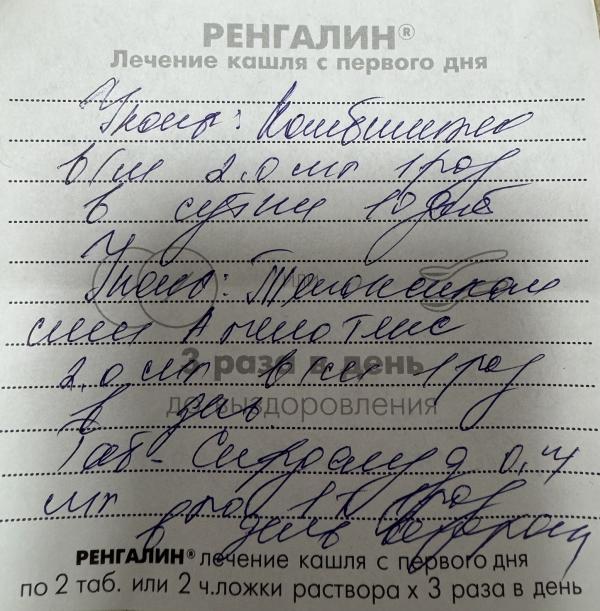 РЕНГАЛИН®
Лечение кашля с первого дня
Уколы: Комбилипен
в/м 2.0 мл 1 раз
в сутки 10 дней
или
Уколы:
или
2.0 мл в/м 1 раз
3 раза в день
в день
до выздоровления
Таб- Сирдалуд 0,4
мг 1 раз
в день вечером
РЕНГАЛИН® лечение кашля с первого дня
по 2 таб. или 2 ч.ложки раствора х 3 раза в день